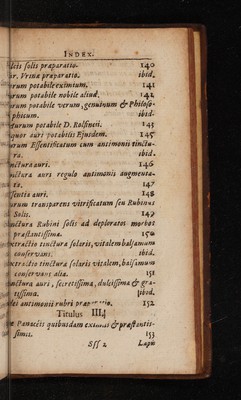 INDEX.
solis præparatio. 140
Vrinæ præparatio. ibid.
potabile eximium. 141
potabile nobile aliud. 142
potabile verum, genuinum & Philoso-
phicum. ibid.
Aurum potabile D. Rolfincii. 143
auri potabilis Ejusdem. 145
Essentificatum cum antimonii tinctu-
ra. ibid.
auri. 146
auri regulo antimonii augmenta-
147
auri. 148
transparens vitrificatum seu Rubinus
Solis. 149
Rubini solis ad deploratos morbos
præstantissima. 150
tinctura solaris, vitalem balsamum
conservans. ibid.
tinctura solaris vitalem, balsamum
conservans alia. 151
auri, secretissima, dulcissima & gra-
tissima. ibid.
antimonii rubri 152
Titulus III.
Panaceis quibusdam & præstantis-
simis. 153
Sff 2 Lapis